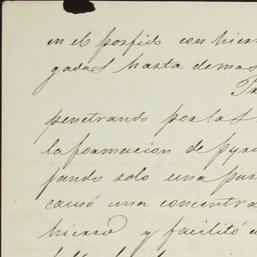 en el porfido con hier
gadas hasta demas
penetrando por las
la formacion de pyri
pando solo una par
causó una concentra
hierro y facilitó